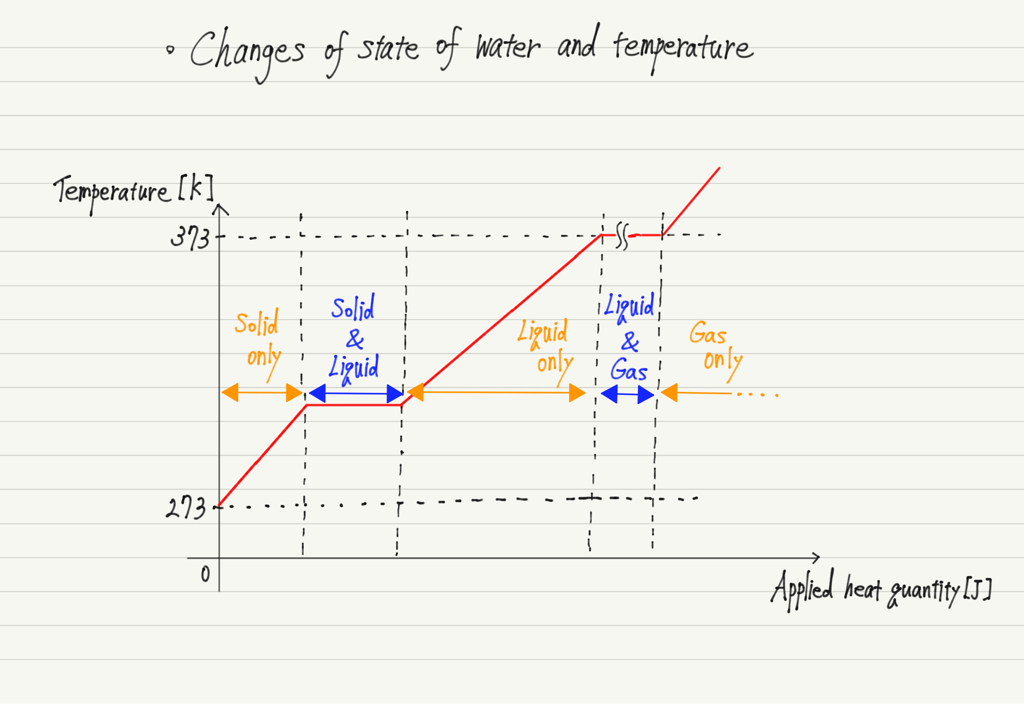 • Changes of state of water and temperature
Temperature [k]
373
Solid
only
Solid
&
Liquid
Liquid
only
Liquid
&
Gas
Gas
only
273
0
Applied heat quantity [J]